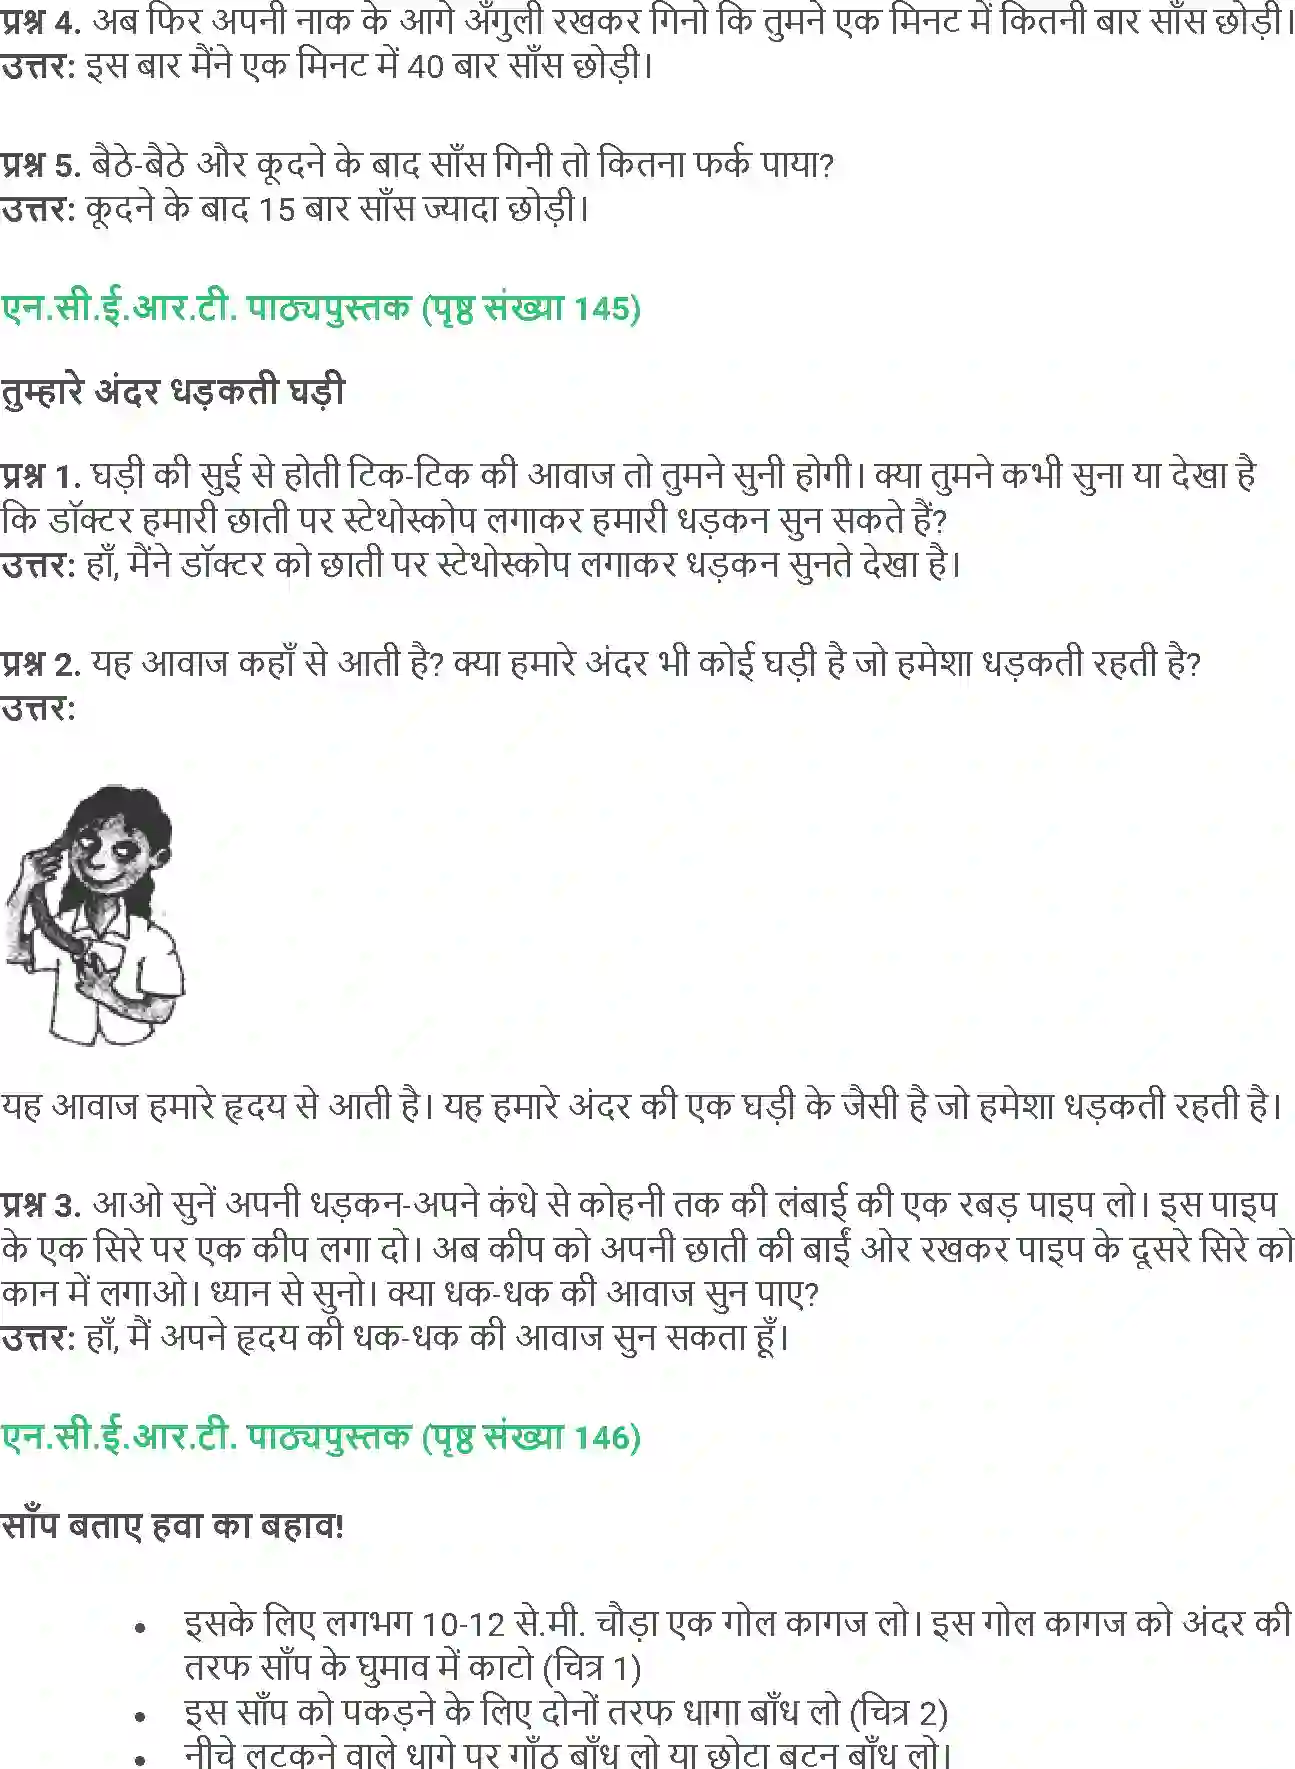 प्रश्न 4. अब फिर अपनी नाक के आगे अँगुली रखकर गिनो कि तुमने एक मिनट में कितनी बार साँस छोड़ी।
उत्तर: इस बार मैंने एक मिनट में 40 बार साँस छोड़ी।
प्रश्न 5. बैठे-बैठे और कूदने के बाद साँस गिनी तो कितना फर्क पाया?
उत्तर: कूदने के बाद 15 बार साँस ज्यादा छोड़ी।
एन.सी.ई.आर.टी. पाठ्यपुस्तक (पृष्ठ संख्या 145)
तुम्हारे अंदर धड़कती घड़ी
प्रश्न 1. घड़ी की सुई से होती टिक-टिक की आवाज तो तुमने सुनी होगी। क्या तुमने कभी सुना या देखा है
कि डॉक्टर हमारी छाती पर स्टेथोस्कोप लगाकर हमारी धड़कन सुन सकते हैं?
उत्तर: हाँ, मैंने डॉक्टर को छाती पर स्टेथोस्कोप लगाकर धड़कन सुनते देखा है।
प्रश्न 2. यह आवाज कहाँ से आती है? क्या हमारे अंदर भी कोई घड़ी है जो हमेशा धड़कती रहती है?
उत्तर:
यह आवाज हमारे हृदय से आती है। यह हमारे अंदर की एक घड़ी के जैसी है जो हमेशा धड़कती रहती है।
प्रश्न 3. आओ सुनें अपनी धड़कन-अपने कंधे से कोहनी तक की लंबाई की एक रबड़ पाइप लो। इस पाइप
के एक सिरे पर एक कीप लगा दो। अब कीप को अपनी छाती की बाईं ओर रखकर पाइप के दूसरे सिरे को
कान में लगाओ। ध्यान से सुनो। क्या धक-धक की आवाज सुन पाए?
उत्तर: हाँ, मैं अपने हृदय की धक-धक की आवाज सुन सकता हूँ।
एन.सी.ई.आर.टी. पाठ्यपुस्तक (पृष्ठ संख्या 146)
साँप बताए हवा का बहाव!
• इसके लिए लगभग 10-12 से.मी. चौड़ा एक गोल कागज लो। इस गोल कागज को अंदर की
तरफ साँप के घुमाव में काटो (चित्र 1)
• इस साँप को पकड़ने के लिए दोनों तरफ धागा बाँध लो (चित्र 2)
• नीचे लटकने वाले धागे पर गाँठ बाँध लो या छोटा बटन बाँध लो।